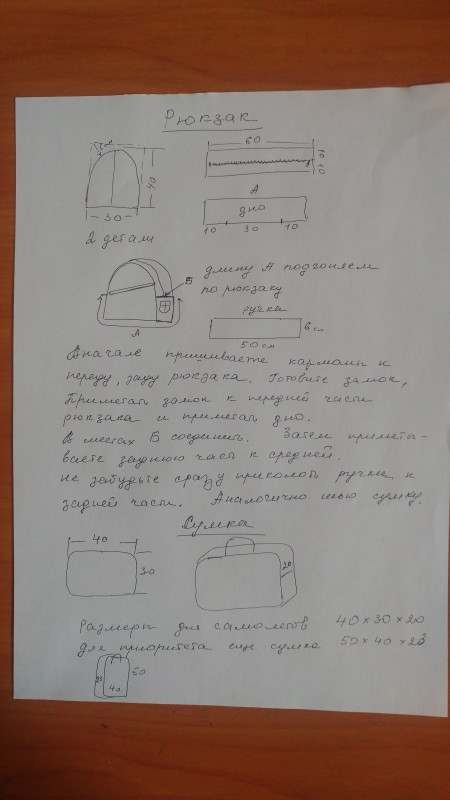 Рюкзак
60
40
10 10
30
А
дно
10 30 10
2 детали
В
длину А подгоняем
по рюкзаку
ручка
6 см
А
50 см
Вначале пришиваете карманы к
переду, заду рюкзака. Готовите замок,
Приметать замок к передней части
рюкзака и приметать дно.
В местах В соединить. Затем приметы-
ваете заднюю часть к средней.
Не забудьте сразу приколоть ручки к
задней части. Аналогично шью сумку.
Сумка
40
30
20
Размеры для самолетов 40×30×20
для приоритета еще сумка 50×40×23
50
40